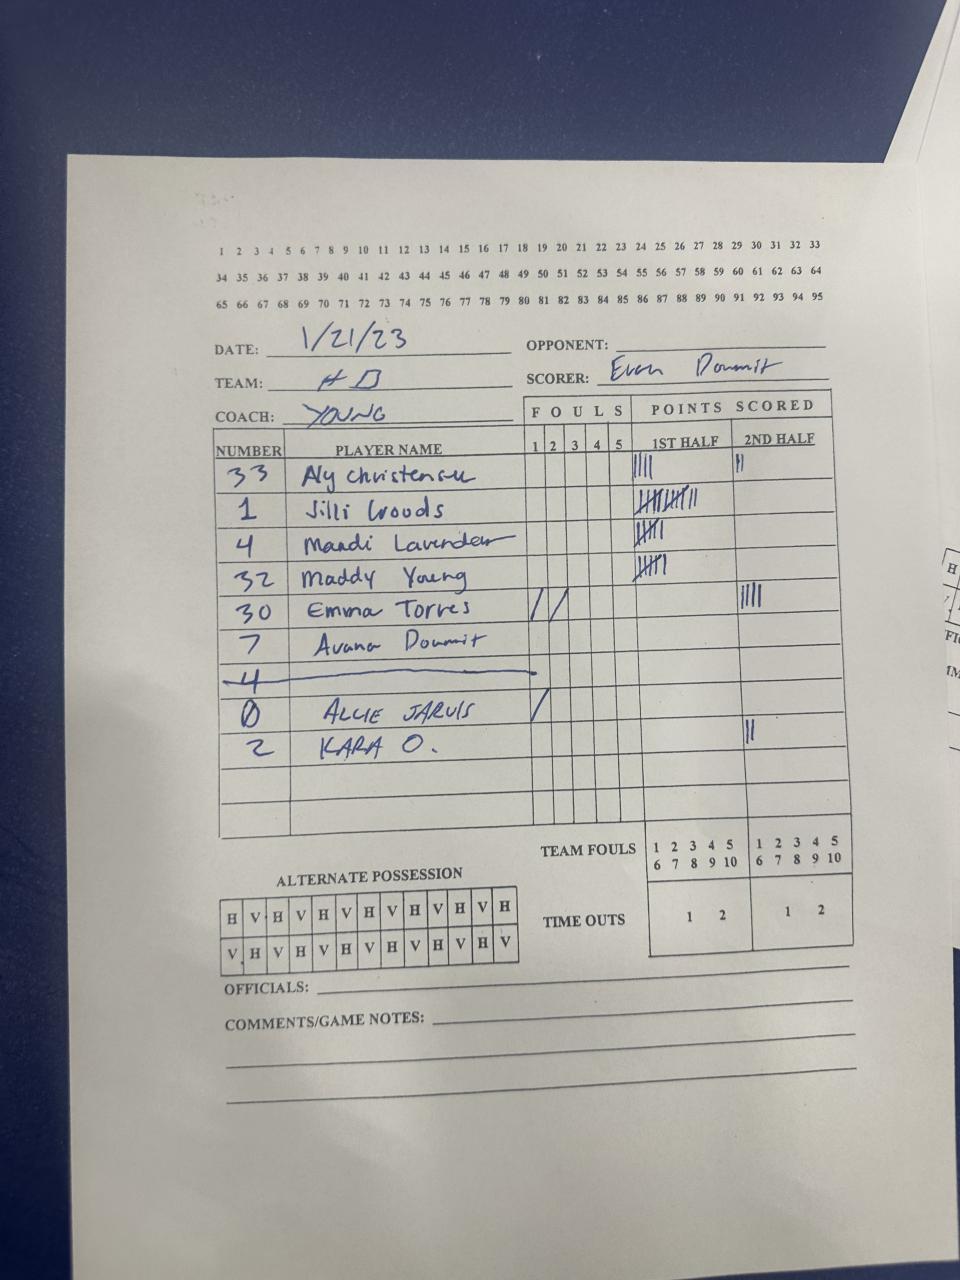 1 2 3 4 5 6 7 8 9 10 11 12 13 14 15 16 17 18 19 20 21 22 23 24 25 26 27 28 29 30 31 32 33
34 35 36 37 38 39 40 41 42 43 44 45 46 47 48 49 50 51 52 53 54 55 56 57 58 59 60 61 62 63 64
65 66 67 68 69 70 71 72 73 74 75 76 77 78 79 80 81 82 83 84 85 86 87 88 89 90 91 92 93 94 95
DATE: 1/21/23 OPPONENT:
TEAM: HD SCORER: Evan Doumit
COACH: YOUNG FOULS POINTS SCORED
NUMBER PLAYER NAME 1 2 3 4 5 1ST HALF 2ND HALF
33 Aly Christensen
1 Jilli Woods
4 Mandi Lavender
32 Maddy Young
30 Emma Torres
7 Avana Doumit
4
0 ALLIE JARVIS
2 KARA O.
TEAM FOULS 1 2 3 4 5 1 2 3 4 5
6 7 8 9 10 6 7 8 9 10
ALTERNATE POSSESSION
H V H V H V H V H V H V H
TIME OUTS 1 2 1 2
V H V H V H V H V H V H V
OFFICIALS:
COMMENTS/GAME NOTES: